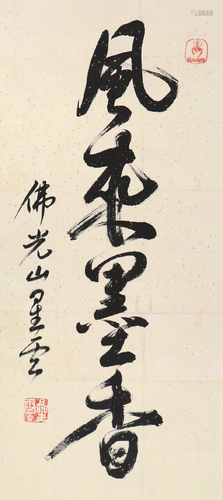 風來墨香
佛光山星雲